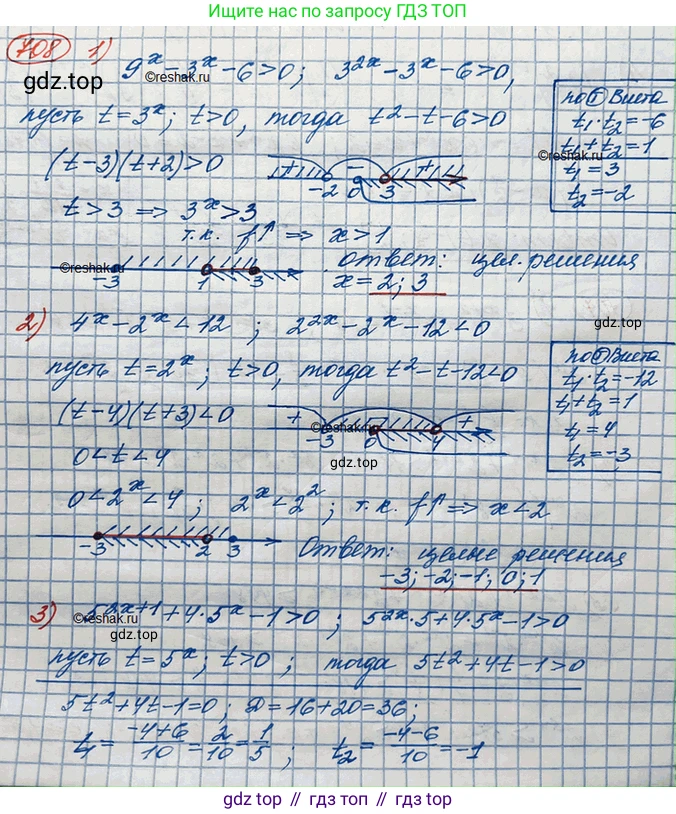 Больше решений по запросу ГДЗ ТОП
708 1) 9ˣ - 3ˣ - 6 > 0; 3²ˣ - 3ˣ - 6 > 0,
gdz.top ©reshak.ru
пусть t = 3ˣ; t > 0, тогда t² - t - 6 > 0
по т Виета
t₁ · t₂ = -6
t₁ + t₂ = 1
t₁ = 3
t₂ = -2
(t - 3)(t + 2) > 0 + -2 - 0 3 +
©reshak.ru
t > 3 ⇒ 3ˣ > 3
т.к. f↑ ⇒ x > 1
-3 1 3
©reshak.ru
Ответ: цел. решения
x = 2; 3
2) 4ˣ - 2ˣ < 12; 2²ˣ - 2ˣ - 12 < 0
gdz.top
пусть t = 2ˣ; t > 0, тогда t² - t - 12 < 0
по т Виета
t₁ · t₂ = -12
t₁ + t₂ = 1
t₁ = 4
t₂ = -3
(t - 4)(t + 3) < 0 + -3 - 0 4 +
©reshak.ru
gdz.top
0 < t < 4
0 < 2ˣ < 4; 2ˣ < 2²; т.к. f↑ ⇒ x < 2
-3 2 3
Ответ: целые решения
-3; -2; -1; 0; 1
3) 5²ˣ⁺¹ + 4 · 5ˣ - 1 > 0; 5²ˣ · 5 + 4 · 5ˣ - 1 > 0
©reshak.ru
gdz.top
пусть t = 5ˣ; t > 0; тогда 5t² + 4t - 1 > 0
5t² + 4t - 1 = 0; D = 16 + 20 = 36;
t₁ = (-4+6)/10 = 2/10 = 1/5; t₂ = (-4-6)/10 = -1
gdz.top // гдз.топ // gdz.top